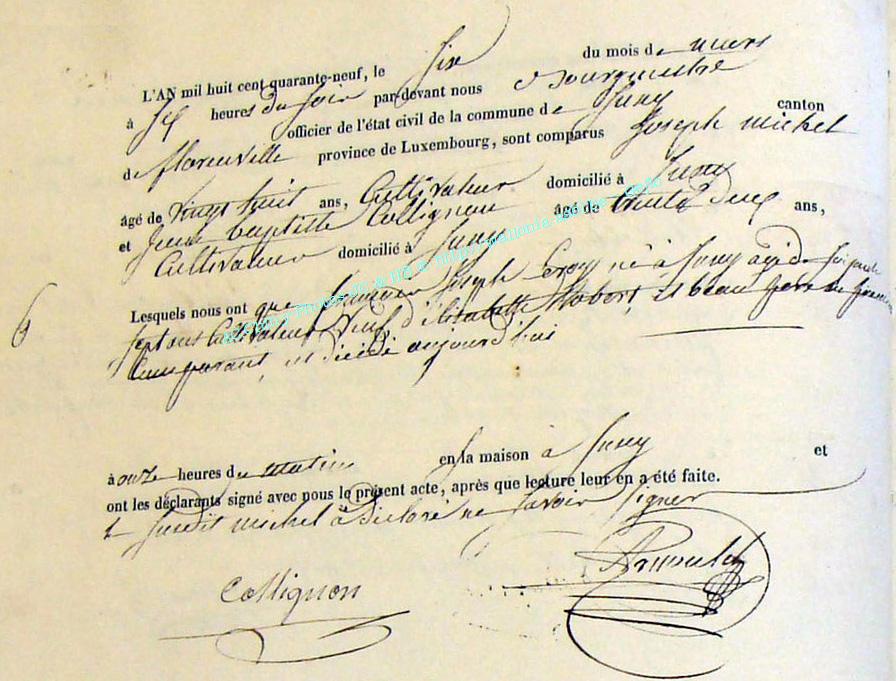 L'AN mil huit cent quarante-neuf, le Six du mois de mars
à Six heures du soir par-devant nous Bourgmestre
officier de l'état civil de la commune de Suxy canton
de florenville province de Luxembourg, sont comparus Joseph michel
âgé de vingt huit ans, Cultivateur domicilié à Suxy
et Jean baptiste Collignon âgé de trente deux ans,
Cultivateur domicilié à Suxy
Lesquels nous ont que Joseph né à Suxy agé de Soixante
Sept ans Cultivateur Veuf d'élisabette et beau frere du premier
Comparant, est décédé aujourd'hui
à onze heures du matin en la maison à Suxy et
ont les déclarants signé avec nous le présent acte, après que lecture leur en a été faite.
Le Susdit michel à déclaré ne Savoir Signer
Collignon